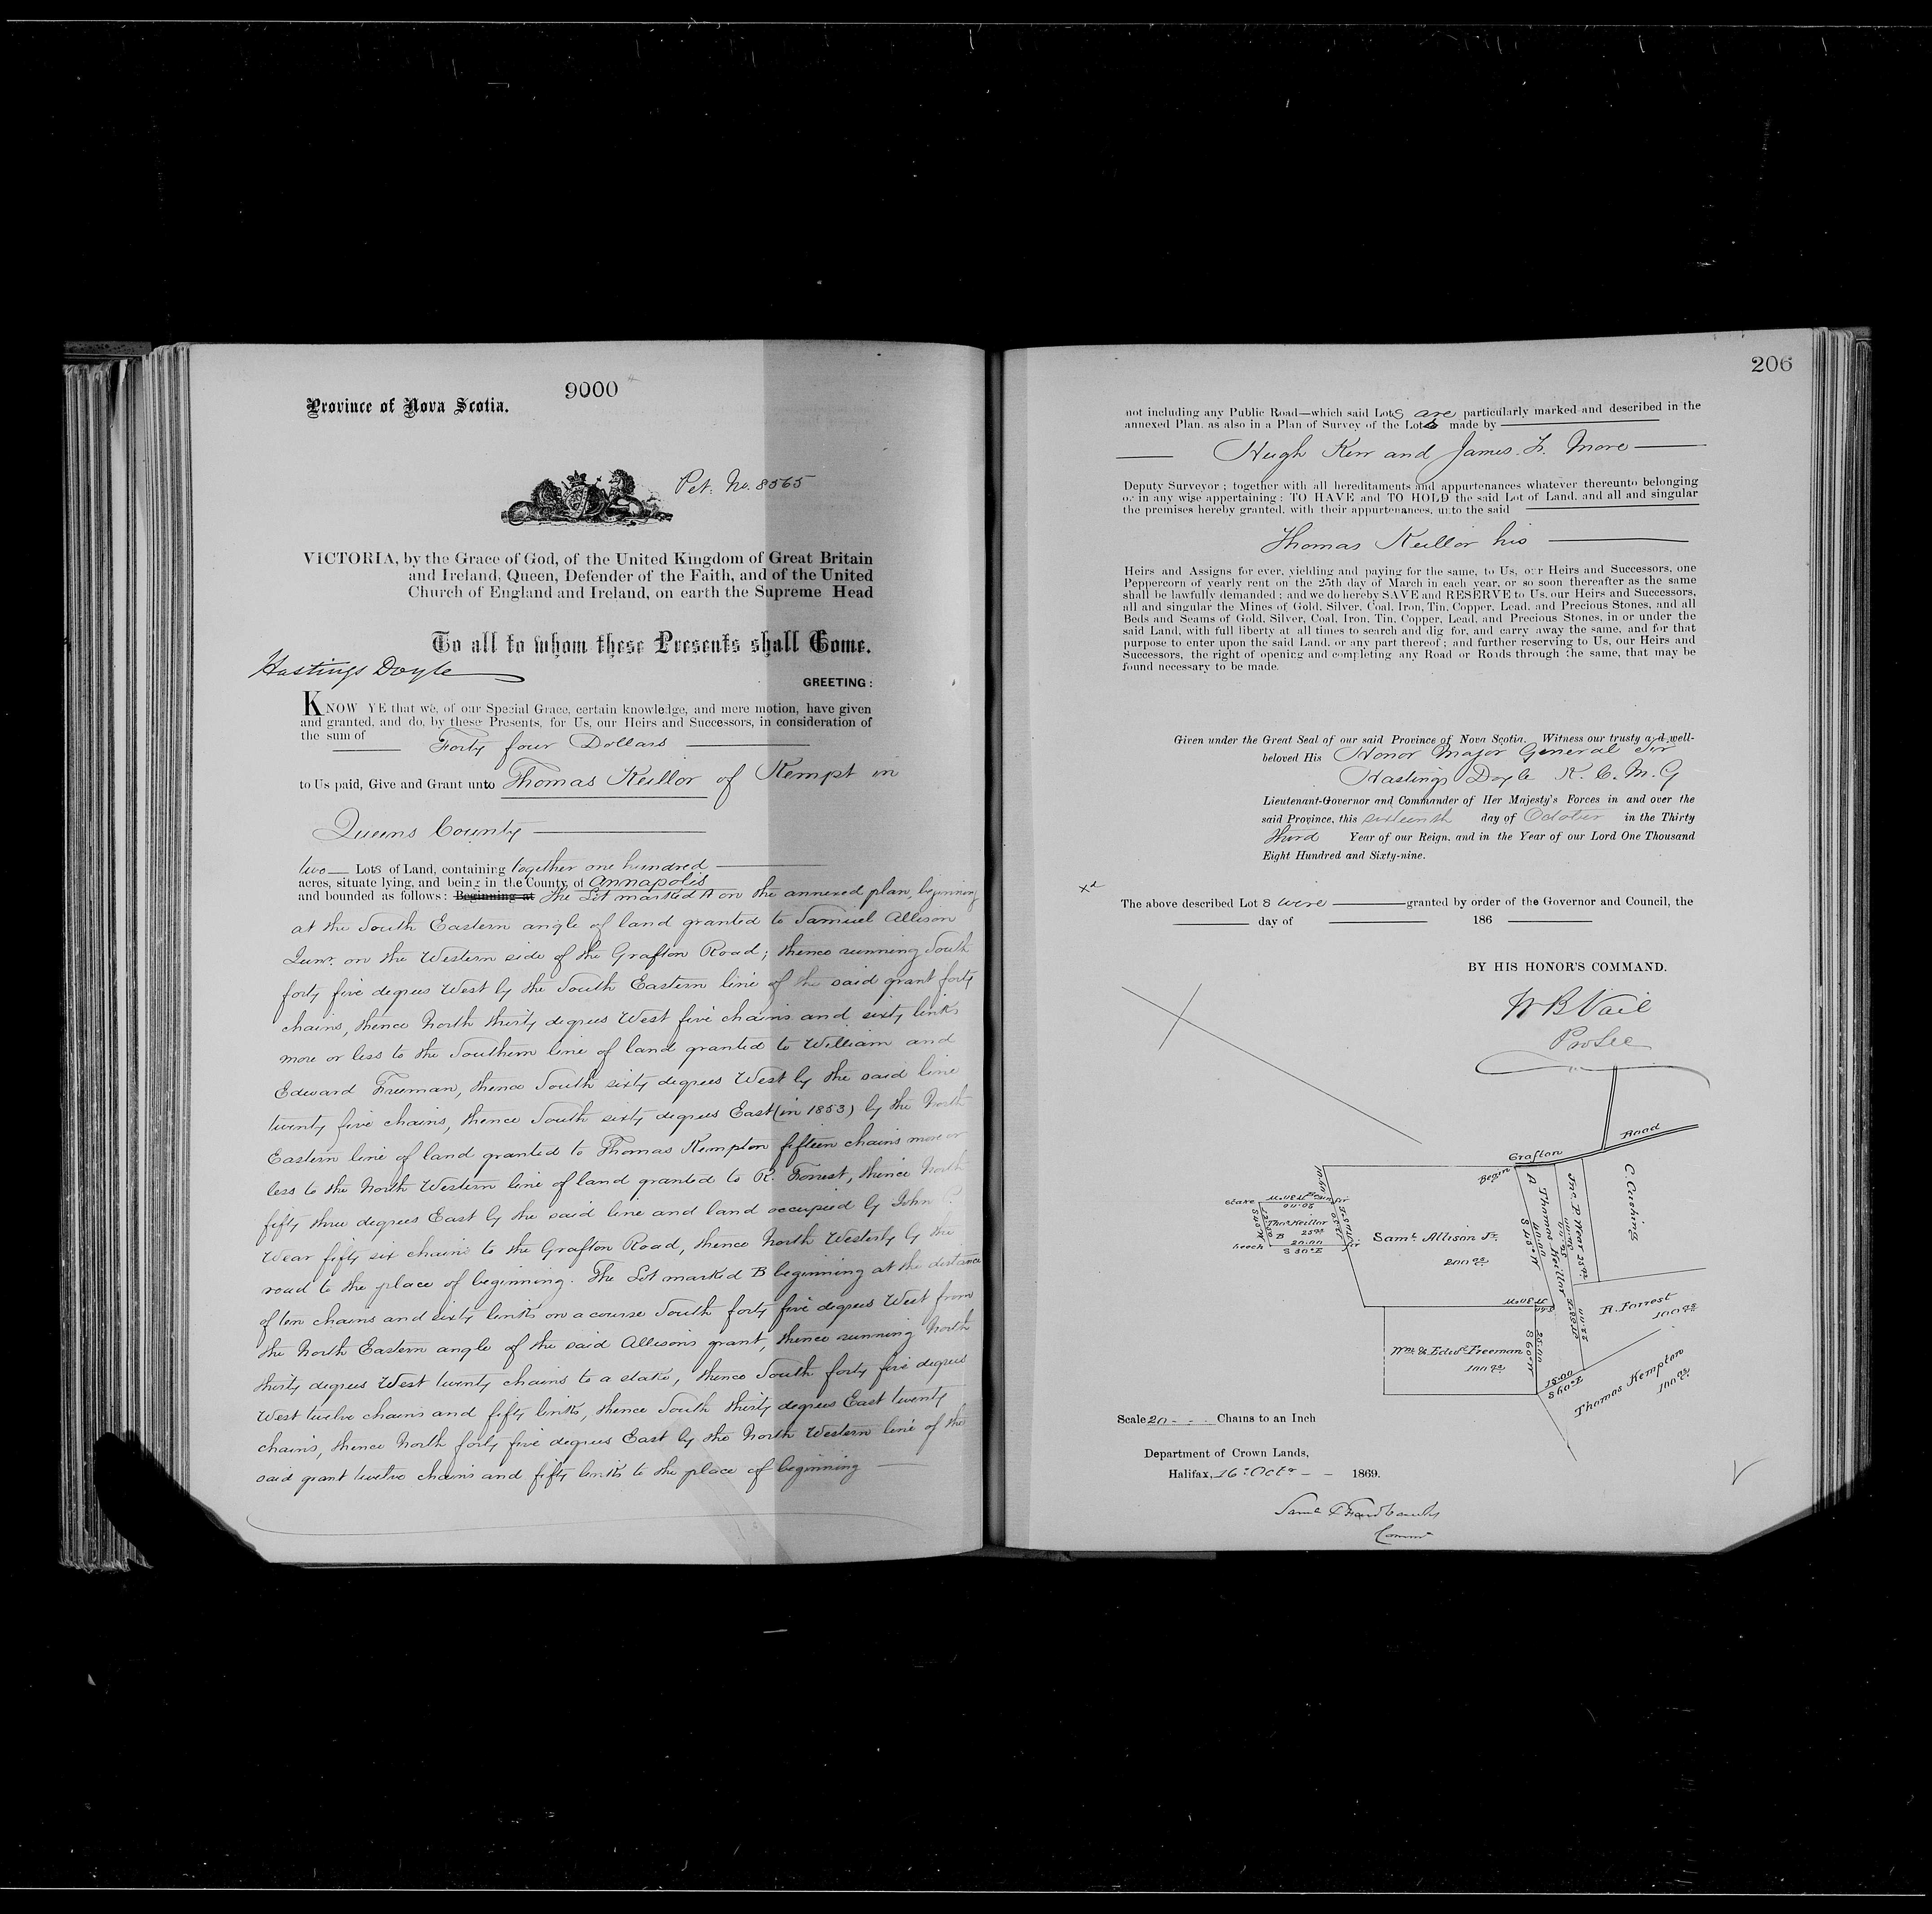 9000
Province of Nova Scotia.
Pet. No. 8565
VICTORIA, by the Grace of God, of the United Kingdom of Great Britain
and Ireland, Queen, Defender of the Faith, and of the United
Church of England and Ireland, on earth the Supreme Head
To all to whom these Presents shall Come.
Hastings Doyle
GREETING:
KNOW YE that we, of our Special Grace, certain knowledge, and mere motion, have given
and granted, and do, by these Presents, for Us, our Heirs and Successors, in consideration of
the sum of Forty four Dollars
to Us paid, Give and Grant unto Thomas Keillor of Kempt in
Queens County
two Lots of Land, containing together one hundred
acres, situate lying, and being in the County of Annapolis
and bounded as follows: Beginning at The Lot marked A on the annexed plan, beginning
at the South Eastern angle of land granted to Samuel Allison
Junr. on the Western side of the Grafton Road; thence running South
forty five degrees West by the South Eastern line of the said grant forty
chains, thence North thirty degrees West five chains and sixty links
more or less to the Southern line of land granted to William and
Edward Freeman, thence South sixty degrees West by the said line
twenty five chains, thence South sixty degrees East (in 1853) by the North
Eastern line of land granted to Thomas Kempton fifteen chains more or
less to the North Western line of land granted to R. Forrest, thence North
fifty three degrees East by the said line and land occupied by John P.
Wear fifty six chains to the Grafton Road, thence North Westerly by the
road to the place of beginning. The Lot marked B beginning at the distance
of ten chains and sixty links on a course South forty five degrees West from
the North Eastern angle of the said Allison's grant, thence running North
thirty degrees West twenty chains to a stake, thence South forty five degrees
West twelve chains and fifty links, thence South thirty degrees East twenty
chains, thence North forty five degrees East by the North Western line of the
said grant twelve chains and fifty links to the place of beginning
206
not including any Public Road—which said Lots are particularly marked and described in the
annexed Plan, as also in a Plan of Survey of the Lots made by
Hugh Kerr and James F. More
Deputy Surveyor; together with all hereditaments and appurtenances whatever thereunto belonging
or in any wise appertaining: TO HAVE and TO HOLD the said Lot of Land, and all and singular
the premises hereby granted, with their appurtenances, unto the said
Thomas Keillor his
Heirs and Assigns for ever, yielding and paying for the same, to Us, our Heirs and Successors, one
Peppercorn of yearly rent on the 25th day of March in each year, or so soon thereafter as the same
shall be lawfully demanded; and we do hereby SAVE and RESERVE to Us, our Heirs and Successors,
all and singular the Mines of Gold, Silver, Coal, Iron, Tin, Copper, Lead, and Precious Stones, and all
Beds and Seams of Gold, Silver, Coal, Iron, Tin, Copper, Lead, and Precious Stones, in or under the
said Land, with full liberty at all times to search and dig for, and carry away the same, and for that
purpose to enter upon the said Land, or any part thereof; and further reserving to Us, our Heirs and
Successors, the right of opening and completing any Road or Roads through the same, that may be
found necessary to be made.
Given under the Great Seal of our said Province of Nova Scotia. Witness our trusty and well-
beloved His Honor Major General Sir
Hastings Doyle K. C. M. G
Lieutenant-Governor and Commander of Her Majesty's Forces in and over the
said Province, this sixteenth day of October in the Thirty
third Year of our Reign, and in the Year of our Lord One Thousand
Eight Hundred and Sixty-nine.
The above described Lots were granted by order of the Governor and Council, the
day of 186
BY HIS HONOR'S COMMAND.
W B Vail
Pro Sec
Grafton Road
Begin
Stake
20.00
Thos. Keillor
B 25 as.
20.00
S 30° E
beech
fir
Saml. Allison Jr.
200 as.
A Thomas Keillor
40.00
S 45° W
Jno. P. Wear 25 as.
C. Cushing
R. Forrest
100 as.
Wm. & Edwd. Freeman
100 as.
25.00
S 60° W
15.00
S 60° E
Thomas Kempton
100 as.
Scale 20 Chains to an Inch
Department of Crown Lands,
Halifax, 16th Octr 1869.